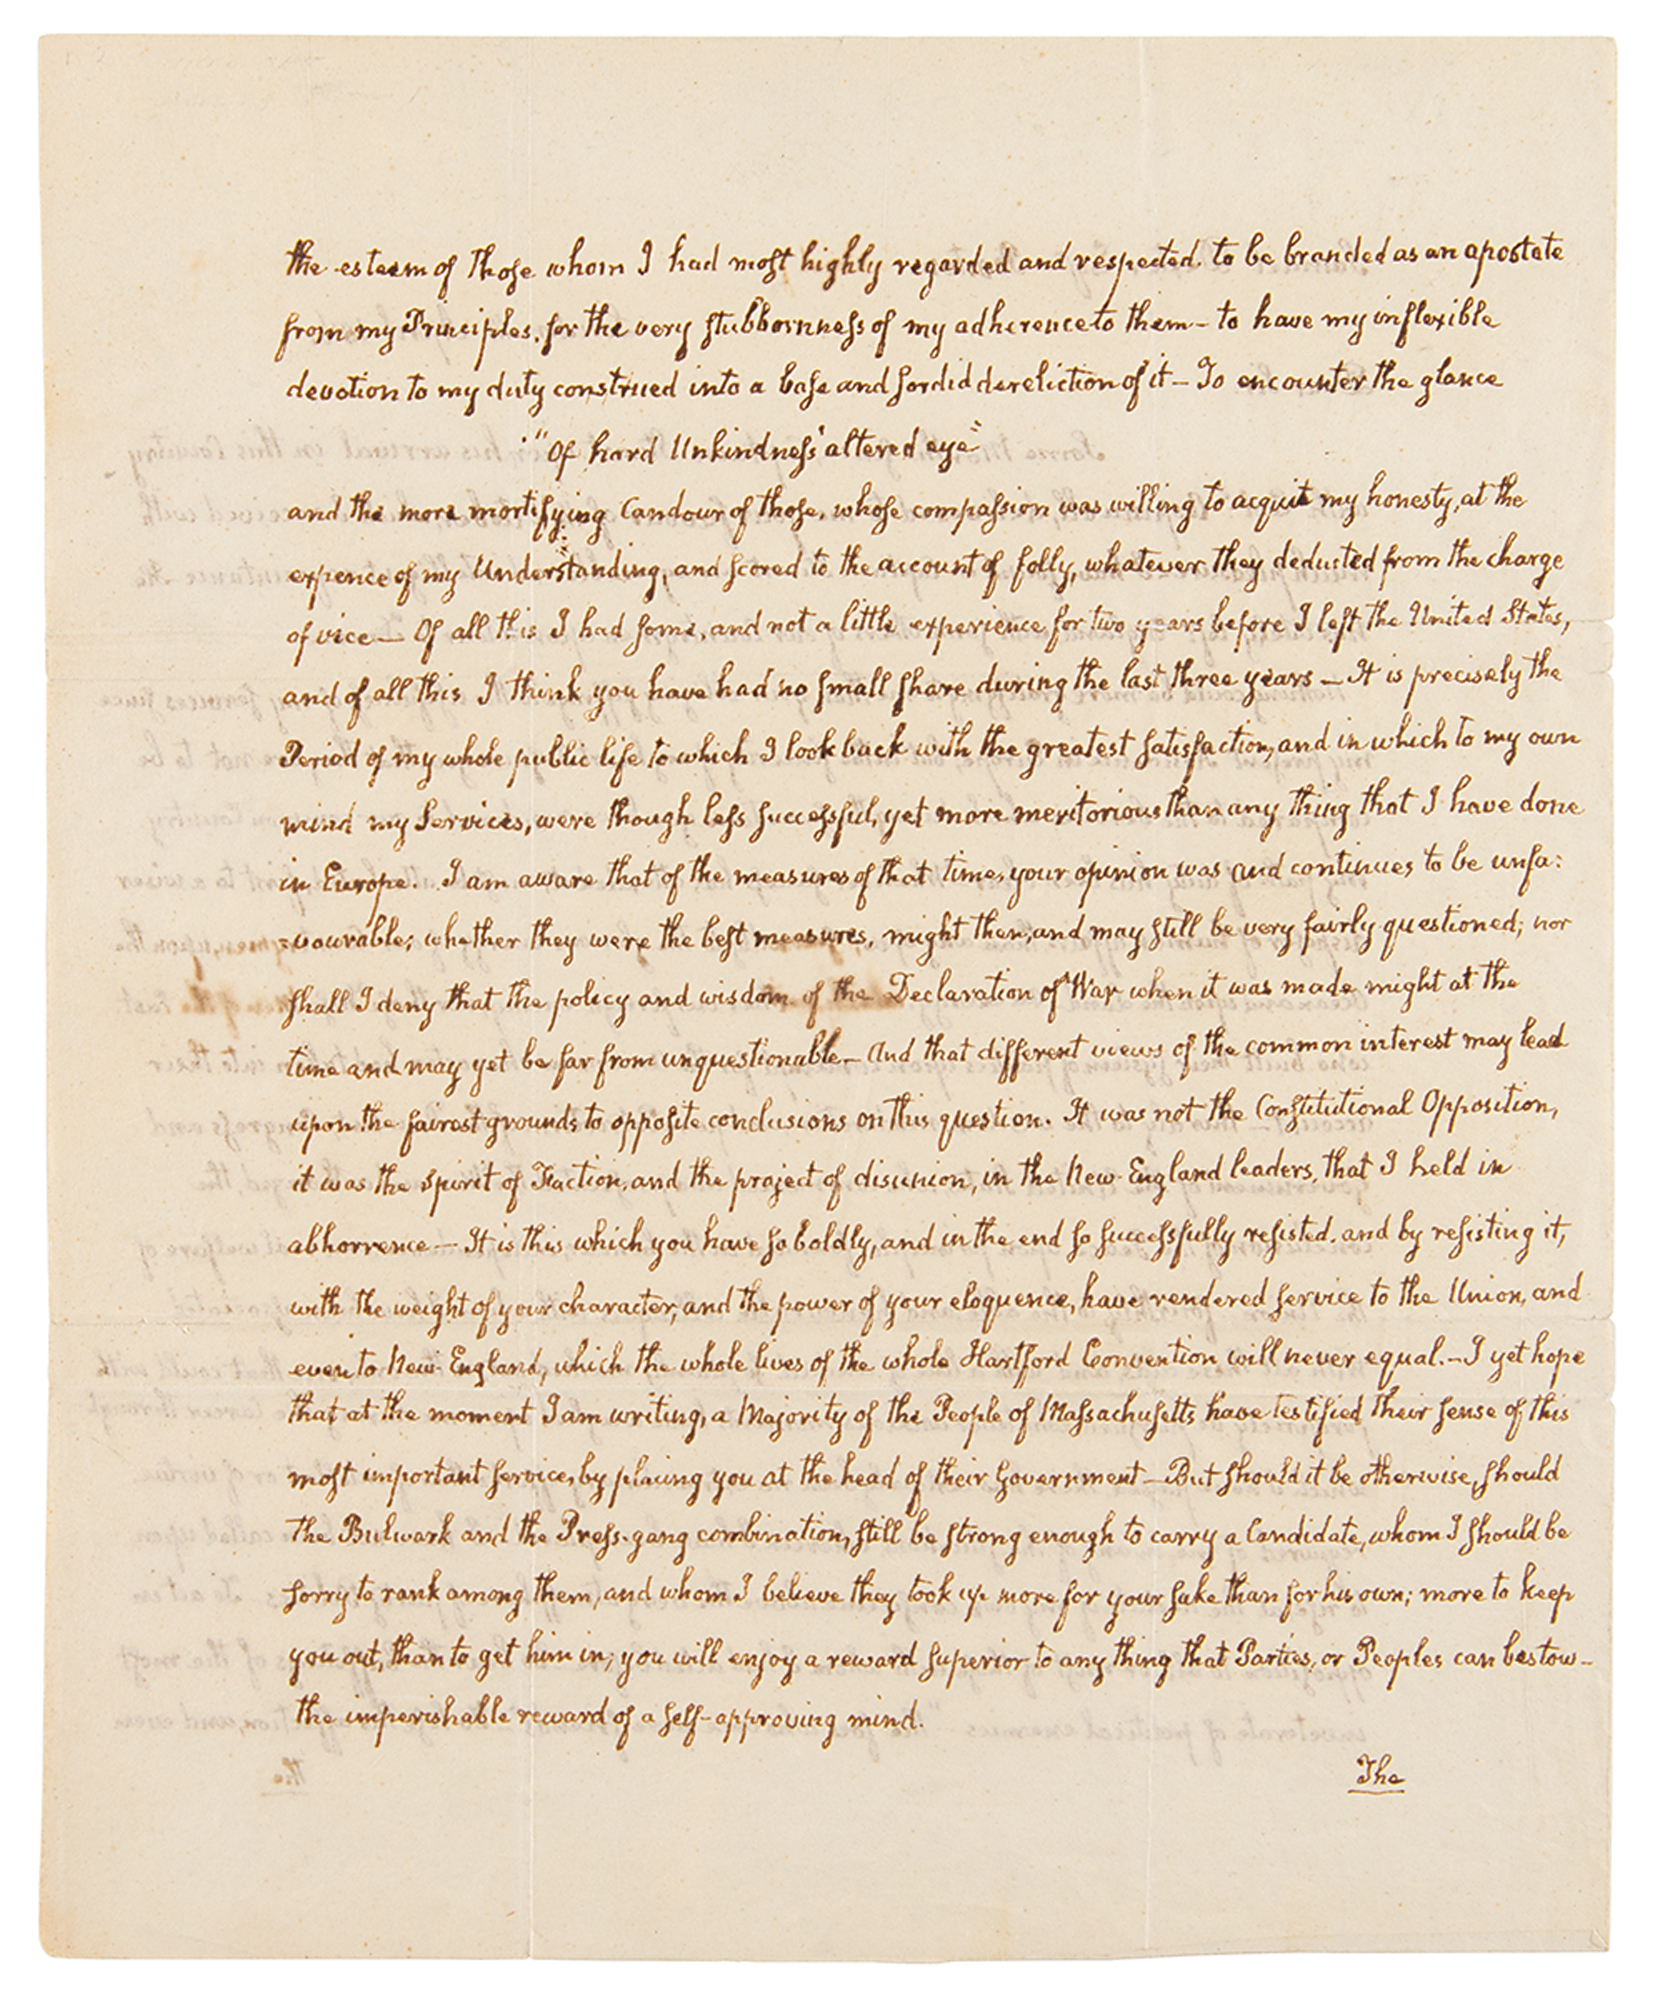 the esteem of those whom I had most highly regarded and respected. to be branded as an apostate
from my Principles, for the very stubbornness of my adherence to them – to have my inflexible
devotion to my duty construed into a base and sordid dereliction of it – To encounter the glance
"Of hard Unkindness' altered eye"
and the more mortifying Candour of those, whose compassion was willing to acquit my honesty, at the
expence of my Understanding, and scored to the account of folly, whatever they deducted from the charge
of vice — Of all this I had some, and not a little experience for two years before I left the United States,
and of all this I think you have had no small share during the last three years – It is precisely the
Period of my whole public life to which I look back with the greatest satisfaction, and in which to my own
mind my Services, were though less successful, yet more meritorious than any thing that I have done
in Europe. I am aware that of the measures of that time, your opinion was and continues to be unfa:
=vourable; whether they were the best measures, might then, and may still be very fairly questioned; nor
shall I deny that the policy and wisdom of the Declaration of War when it was made might at the
time and may yet be far from unquestionable – And that different views of the common interest may lead
upon the fairest grounds to opposite conclusions on this question. It was not the Constitutional Opposition,
it was the spirit of Faction, and the project of disunion, in the New-England leaders, that I held in
abhorrence — It is this which you have so boldly, and in the end so successfully resisted. and by resisting it,
with the weight of your character, and the power of your eloquence, have rendered service to the Union, and
even to New-England, which the whole lives of the whole Hartford Convention will never equal. – I yet hope
that at the moment I am writing, a Majority of the People of Massachusetts have testified their sense of this
most important service, by placing you at the head of their Government – But should it be otherwise, should
the Bulwark and the Press-gang combination, still be strong enough to carry a Candidate, whom I should be
sorry to rank among them, and whom I believe they took up more for your sake than for his own; more to keep
you out, than to get him in; you will enjoy a reward superior to any thing that Parties, or Peoples can bestow –
the imperishable reward of a self-approving mind.
The